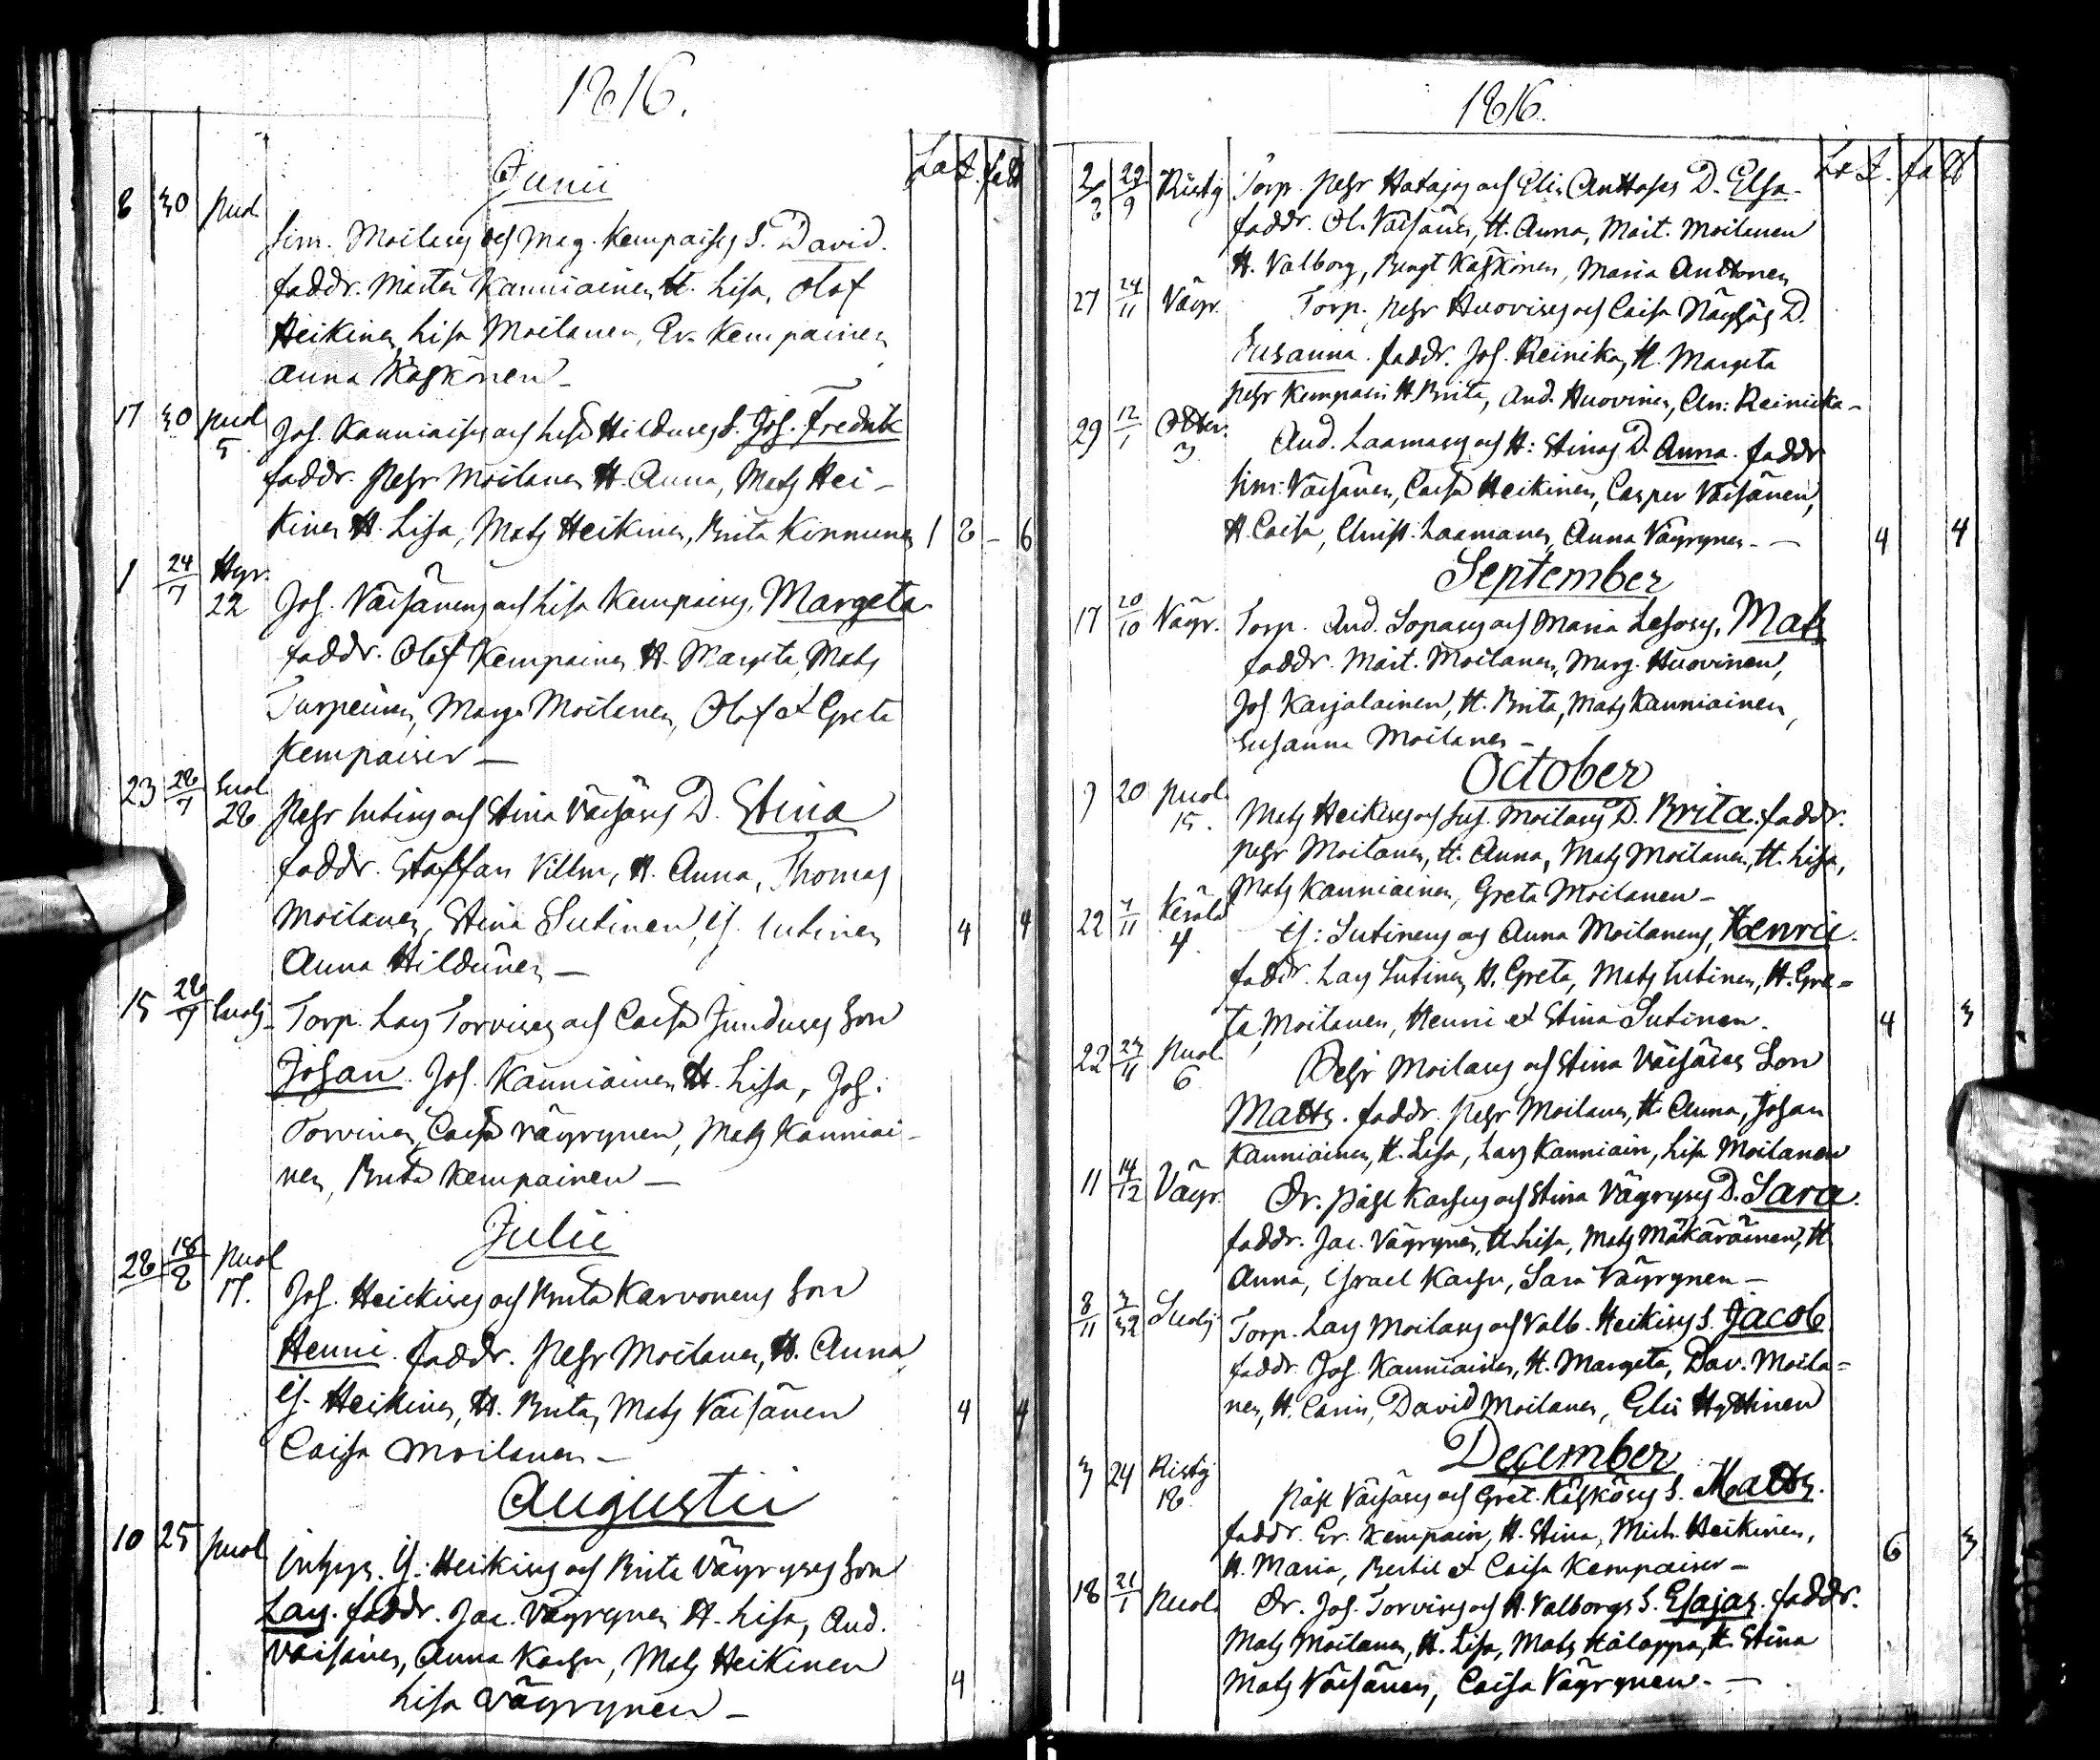 1816.
Junii
8 30 Puol
Sim. Moilasen och Mag. Kempaisens S. David.
faddr. Mårten Kanniainen H. Lisa, Olof
Heikinen, Lisa Moilanen, Er. Kempainen
Anna Käskönen –
17 30 Puol 5
Joh. Kanniaisens och Lisa Hildunens S. Joh. Fredrik
faddr. Pehr Moilanen H. Anna, Mats Hei-
kinen H. Lisa, Mats Heikinen, Brita Kinnunen 1 8 – 6
1 24/7 Hyr. 22
Joh. Väisänens och Lisa Kempaisens, Margeta
faddr. Olof Kempainen H. Margeta, Mats
Turpeinen, Marg. Moilanen, Olof et Greta
Kempainen –
23 28/7 Suol 28
Pehr Sutinens och Stina Väisäsens D. Stina
faddr. Staffan Villm, H. Anna, Thomas
Moilanen, Stina Sutinen, Is. Sutinen 4 4
Anna Hildunen –
15 28/7 Suolj.
Torp. Lars Torvisens och Caisa Jundusens Son
Johan. Joh. Kanniainen H. Lisa, Joh.
Torvinen, Caisa Väyrynen, Mats Kanniai-
nen, Brita Kempainen –
Julii
28 18/8 Puol 17.
Joh. Heickisens och Brita Karvonens Son
Henric. faddr. Pehr Moilanen, H. Anna
Is. Heikinen, H. Brita, Mats Väisänen 4 4
Caisa Moilanen –
Augustii
10 25 Puol
Inhys. Is: Heikisens och Brita Väyrysens Son
Lars. faddr. Jac. Väyrynen H. Lisa, And.
Väisänen, Anna Karhu, Mats Heikinen 4
Lisa Väyrynen –
1816.
2/8 22/9 Ristij
Torp. Pehr Hatajas och Elis. Anttoses D. Elsa.
faddr. Ol. Väisänen, H. Anna, Mårt. Moilanen
H. Valborg, Bengt Käskönen, Maria Anttonen
27 24/11 Väyr.
Torp. Pehr Huovisens och Caisa Näysäs D.
Susanna. faddr. Joh. Reinika, H. Margeta
Pehr Kempain H. Brita, And. Huovinen, An: Reinicka –
29 12/1 3
And. Laamasens och H: Stinas D. Anna. faddr
Sim: Väisänen, Caisa Heikinen, Casper Väisänen,
H. Caisa, Christ. Laamanen, Anna Väyrynen – 4 4
September
17 20/10 Väyr.
Torp. And. Sopasens och Maria Lesosens, Mats
faddr. Mårt. Moilanen, Marg. Huovinen,
Joh. Karjalainen, H. Brita, Mats Kanniainen,
Susanna Moilanen –
October
9 20 Puol 15.
Mats Heikisens och Sus. Moilasens D. Brita. faddr.
Pehr Moilanen, H. Anna, Mats Moilanen, H. Lisa,
Mats Kanniainen, Greta Moilanen –
22 7/11 Kerälä 4
Is: Sutinens och Anna Moilanens, Henric.
faddr. Lars Sutinen, H. Greta, Mats Sutinen, H. Gre=
ta Moilanen, Henric et Stina Sutinen. 4 3
22 23/11 Puol 6
Pehr Moilasens och Stina Väisäses Son
Matts. faddr. Pehr Moilanen, H. Anna, Johan
Kanniainen, H. Lisa, Lars Kanniain, Lisa Moilanen
11 14/12 Väyr.
Dr. Påhl Karhus och Stina Väyrysens D. Sara.
faddr. Jac. Väyrynen, H. Lisa, Mats Mäkäräinen, H
Anna, Israel Karhu, Sara Väyrynen –
8/11 Suolj.
Torp. Lars Moilasens och Valb. Heikisens S. Jacob.
faddr. Joh. Kanniainen, H. Margeta, Dav. Moila=
nen, H. Carin, David Moilanen, Elis Hyttinen
December
3 24 Ristij 18
Påhl Väisäsens och Gret. Käskösens S. Matts.
faddr. Er. Kempain, H. Stina, Mich. Heikinen,
H. Maria, Bertil et Caisa Kempainen – 6 3
18 21/1 Puol.
Dr. Joh. Torvisens och H. Valborgs S. Esajas. faddr.
Mats Moilanen, H. Lisa, Mats Hålappa, H. Stina
Mats Väisänen, Caisa Väyrynen. –